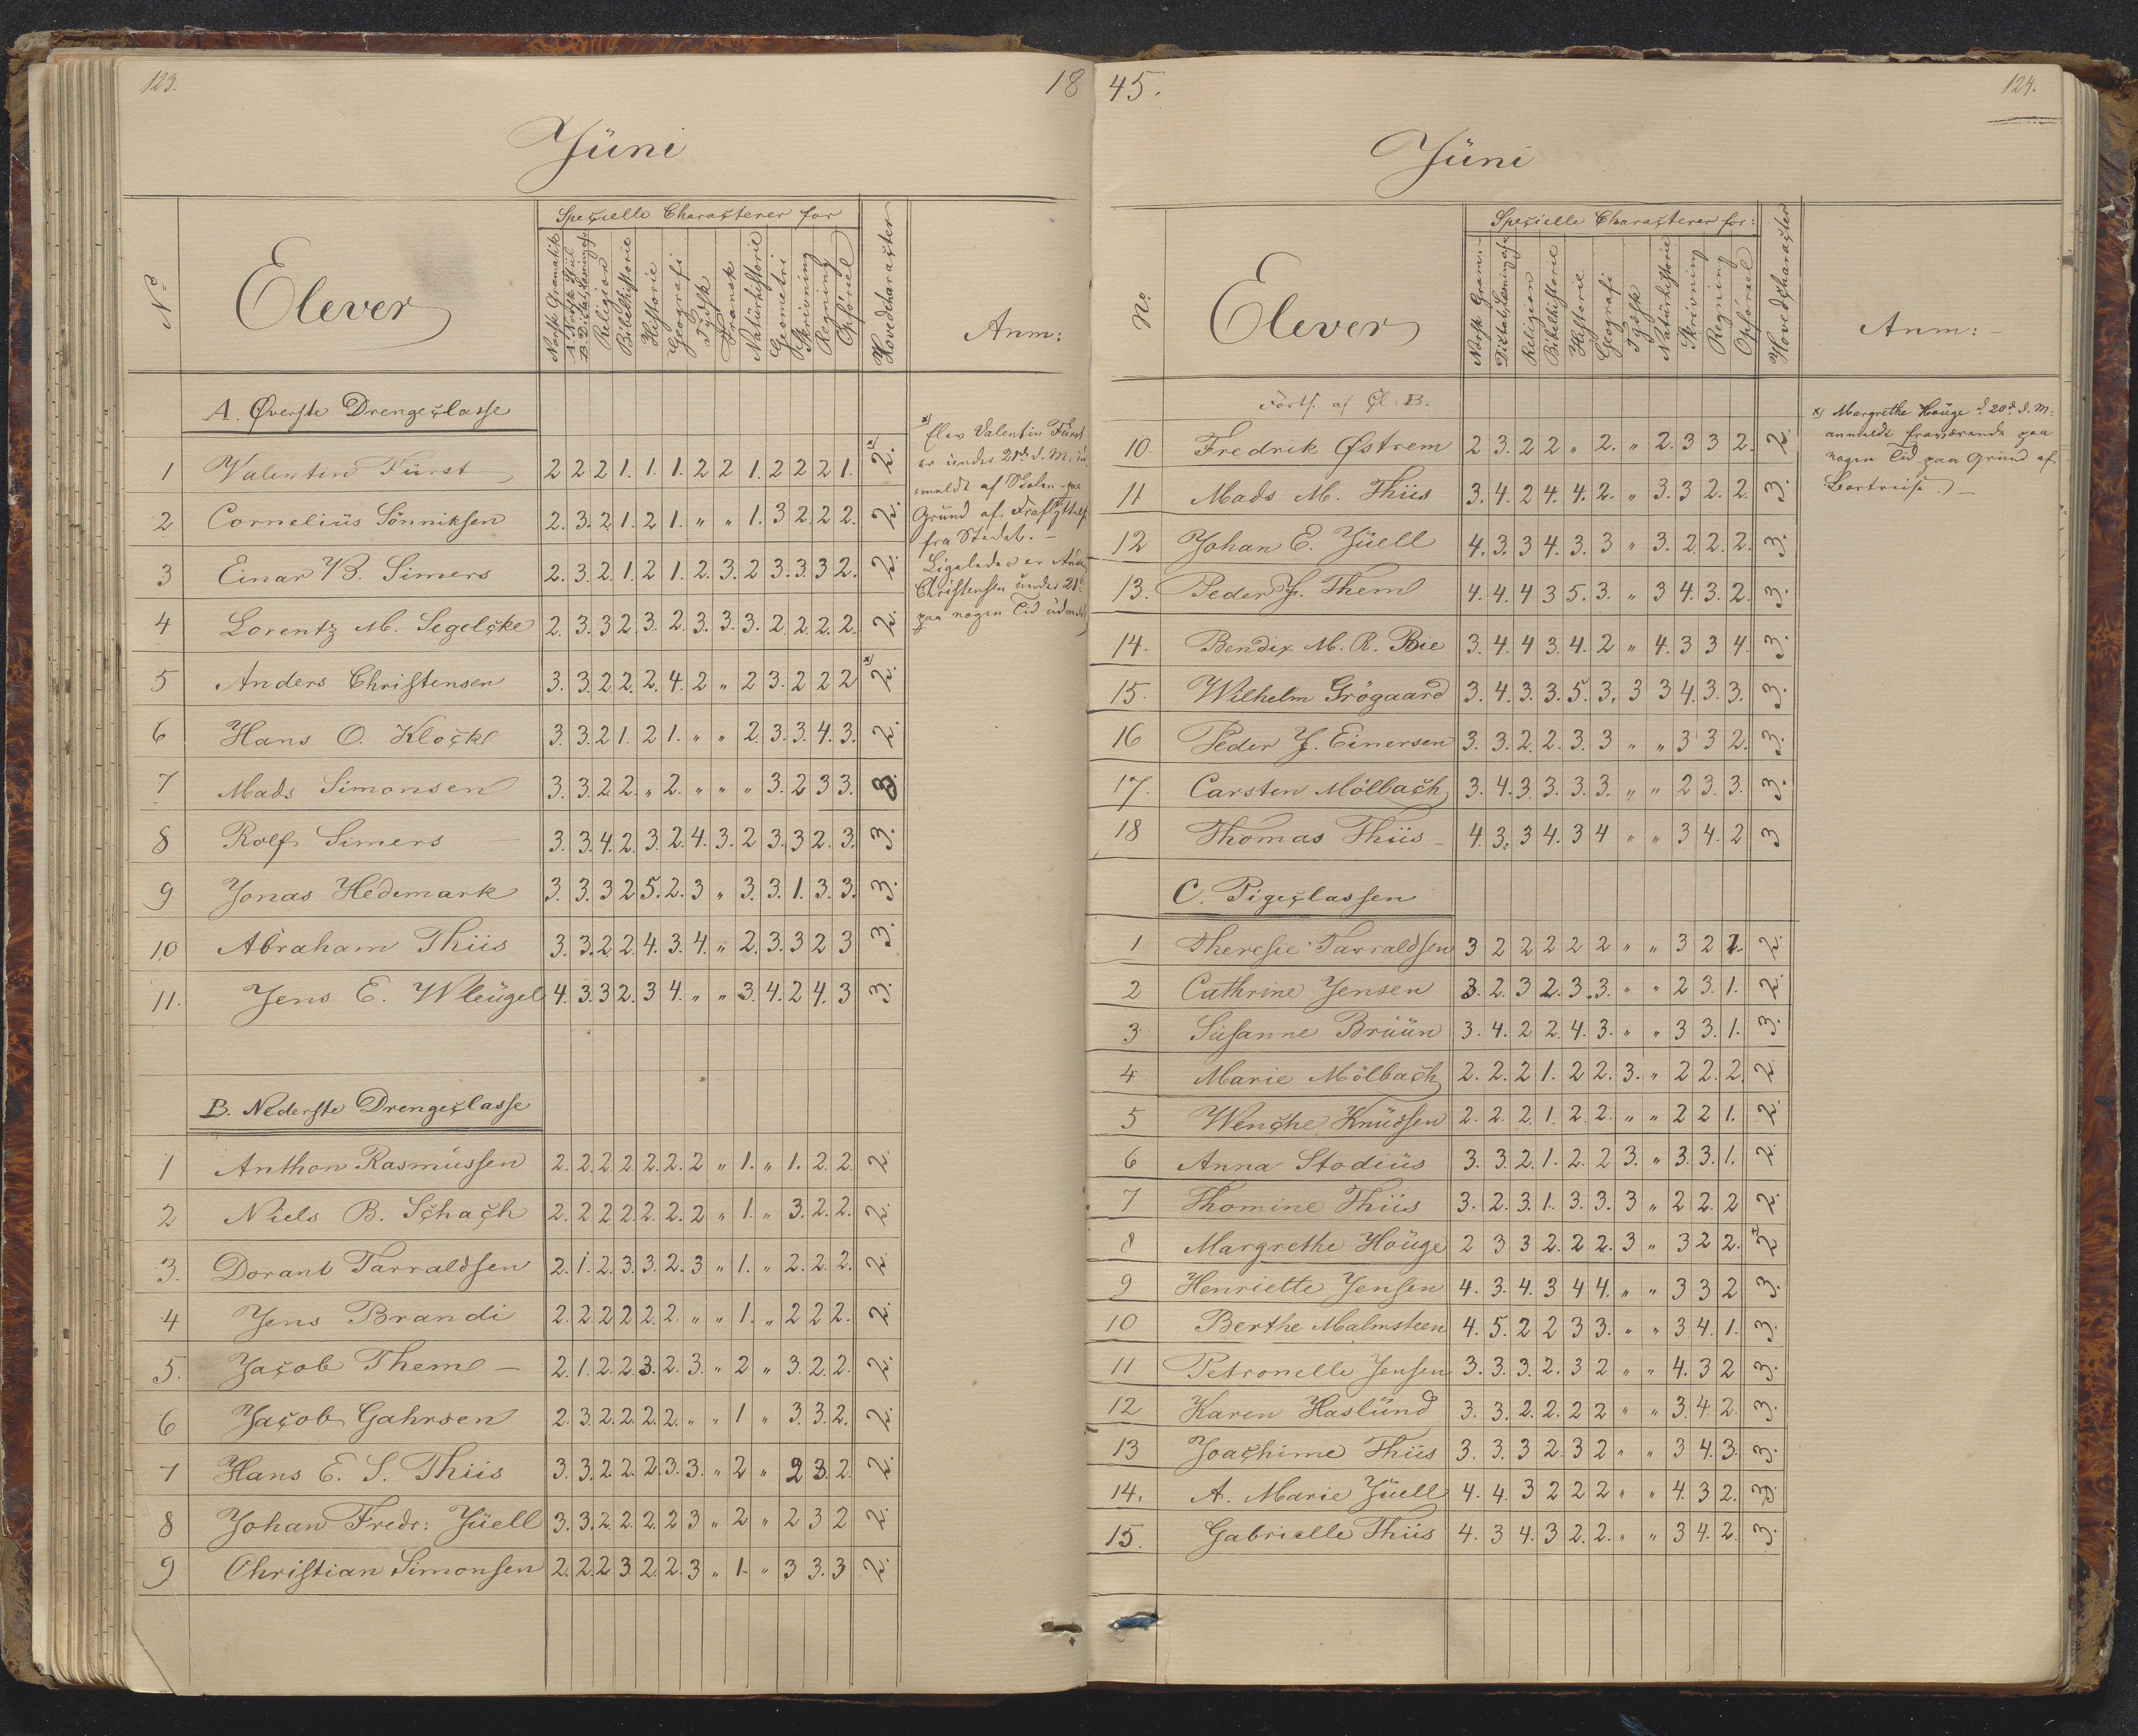 123.
18
Jüni
Nº
Elever
Specielle Characterer for
Norsk Gramatik
A. Norsk Stil
B. Dictatskrivning
Religion
Bibelhistorie
Historie
Geografi
Tydsk
Fransk
Natürhistorie
Geometri
Skrivning
Regning
Opførsel
Hovedcharacter
Anm:
A. Øverste Drengeclasse
1 Valentin Fürst 2 2 2 1. 1. 1. 2 2 1. 2 2 2 1. 2. x)
2 Cornelius Sönniksen 2. 3. 2 1. 2 1. " " 1. 3 2. 2 2. 2.
3 Einar B. Simers 2. 3. 2 1. 2 1. 2. 3. 2 3. 3. 3 2. 2.
4 Lorentz M. Segelcke 2. 3. 3 2. 3. 2. 3. 3. 3. 2. 2. 2. 2. 2.
5 Anders Christensen 3. 3. 2. 2. 2. 4. 2 " 2 3. 2 2 2 2. x)
6 Hans O. Klocke 3. 3. 2 1. 2 1. " " 2. 3. 3. 4. 3. 2.
7 Mads Simonsen 3. 3. 2. 2. " 2. " " " 3. 2 3 3. 3.
8 Rolf Simers 3. 3. 4. 2. 3. 2. 4. 3. 2 3. 3 2. 3. 3.
9 Jonas Hedemark 3. 3. 3 2 5. 2. 3 " 3. 3. 1. 3. 3. 3.
10 Abraham Thiis 3. 3. 2. 2. 4. 3. 4. " 2. 3. 3 2 3 3.
11. Jens E. Wleügel 4. 3. 3 2. 3 4. " " 3. 4. 2 4. 3 3.
B. Nederste Drengeclasse
1 Anthon Rasmüssen 2. 2. 2. 2 2. 2. 2 " 1. " 1. 2. 2. 2.
2 Niels B. Schach 2. 2. 2 2. 2. 2. 2 " 1. " 3. 2. 2. 2.
3. Dorant Tarraldsen 2. 1. 2. 3. 3. 2. 3 " 1. " 2. 2. 2. 2.
4 Jens Brandi 2. 2. 2 2 2. 2. " " 1. " 2 2 2. 2.
5. Jacob Theml 2. 1. 2. 2. 3. 2. 3. " 2 " 3. 2. 2. 2.
6 Jacob Gahrsen 2. 3. 2. 2. 2. 2. " " 1 " 3. 3. 2. 2.
7 Hans E. S. Thiis 3. 3. 2. 2. 2. 3. 3. " 2 " 2 3. 2. 2.
8 Johan Fredr: Jüell 3. 3. 2. 2. 2. 2 3 " 2 " 2 3 2 2.
9 Christian Simonsen 2. 2. 2 3. 2. 2. 3 " 1. " 3 3. 3 2.
x) Elev Valentin Fürst
er under 21de d. M: üd-
meldt af Skolen paa
Gründ af Fraflyttelse
fra Stedet. –
Ligeledes er Anders
Christensen under 21de
paa nogen Tid üdmeldt
45.
124.
Jüni
No.
Elever
Specielle Characterer for:
Norsk Gram:
Dictatskrivning
Religion
Bibelhistorie
Historie
Geografi
Tydsk
Natürhistorie
Skrivning
Regning
Opførsel
Hovedcharacter
Anm: –
Forts. af Cl: B.
10 Fredrik Østrem 2 3. 2 2 " 2. " 2. 3 3 2. 2.
11 Mads M. Thiis 3. 4. 2 4. 4. 2. " 3. 3 2. 2. 3.
12 Johan E. Jüell 4. 3. 3 4. 3. 3 " 3. 2. 2. 2. 3.
13. Peder J. Theml 4. 4. 4 3 5. 3. " 3 4. 3. 2. 3.
14. Bendix M. R. Bie 3. 4. 4 3. 4. 2 " 4. 3 3 4. 3.
15. Wilhelm Grögaard 3. 4. 3. 3. 5. 3. 3 3 4. 3. 3. 3.
16 Peder J. Einersen 3. 3. 2. 2. 3. 3 " " 3 3 2. 3.
17. Carsten Mölbach 3. 4. 3. 3. 3. 3. " " 2 3. 3. 3.
18 Thomas Thiis 4. 3. 3 4. 3 4 " " 3 4. 2 3
C. Pigeclassen
1 Theresie Tarraldsen 3 2 2 2 2 2 " " 3 2 1. 2.
2 Cathrine Jensen 3. 2. 3 2. 3. 3. " " 2 3. 1. 2.
3 Süsanne Brüün 3. 4. 2 2. 4. 3. " " 3 3. 1. 3.
4 Marie Mölbach 2. 2. 2 1. 2 2. 3. " 2 2. 2. 2.
5 Wenche Knüdsen 2. 2. 2. 1. 2. 2. " " 2 2 1. 2.
6 Anna Stodiüs 3. 3. 2. 1. 2. 2 3. " 3. 3. 1. 2.
7 Thomine Thiis 3. 2. 3. 1. 3. 3. 3 " 2 2. 2 2.
8 Margrethe Houge 2 3 3 2. 2 2. 3 " 3 2 2. 2 x
9 Henriette Jensen 4. 3. 4. 3 4 4. " " 3 3 2 3.
10 Berthe Malmsteen 4. 5. 2 2 3 3. " " 3 4. 1. 3.
11 Petronelle Jensen 3. 3. 3. 2. 3 2 " " 4. 3 2 3.
12 Karen Haslünd 3. 3. 2. 2. 2 2 " " 3. 4. 2. 3.
13 Joachime Thiis 3. 3. 3 2. 3 2 " " 3 4. 3. 3.
14. A. Marie Jüell 4. 4. 3 2 2 2 " " 4. 3 2. 3.
15. Gabrielle Thiis 4. 3 4. 3 2. 2. " " 3 4. 2. 3.
x) Margrethe Houge d. 20de d. M:
anmeldt fraværende paa
nogen Tid paa Gründ af
Bortreise. –